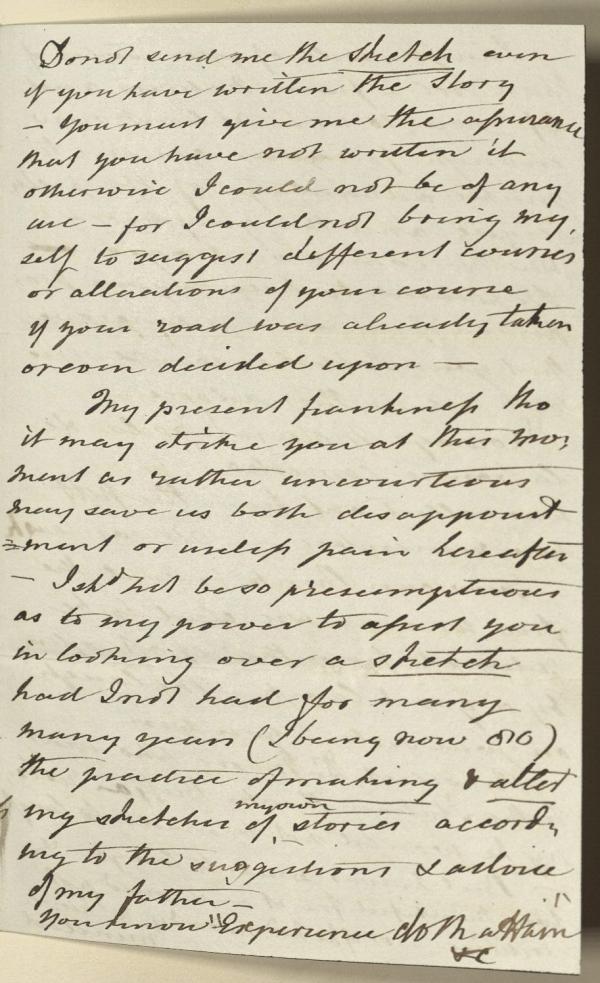 Do not send me the sketch even
if you have written the story
– You must give me the assurance
that you have not written it
otherwise I could not be of any
use – for I could not bring my
self to suggest different courses
or alterations of your course
if your road was already taken
or even decided upon –
My present frankness tho
it may strike you at this mo:
ment as rather uncourteous
may save us both disappoint
=ment or useless pain hereafter
– I shd not be so presumptuous
as to my power to assist you
in looking over a sketch
had I not had for many
many years (I being now 80)
the practice of making & alter
ing sketches of my own stories accord
ing to the suggestions & advice
of my father –
You know "Experience doth attain"
&c